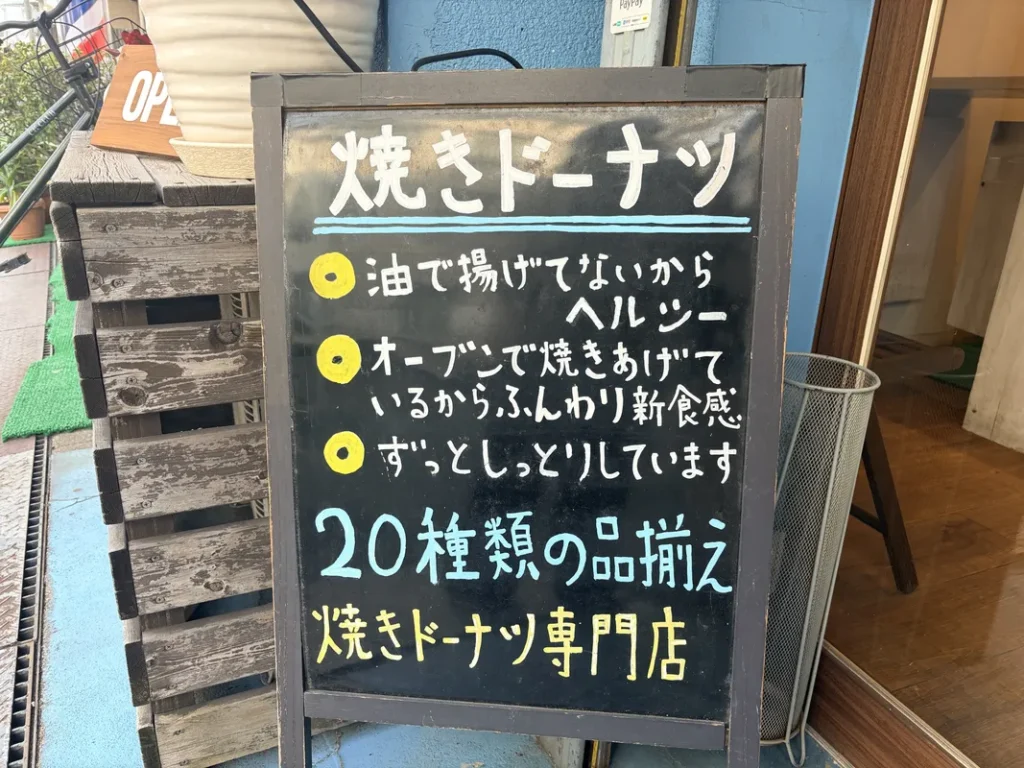 PayPay
OPE
焼きドーナツ
油で揚げてないから
ヘルシー
オーブンで焼きあげて
いるからふんわり新食感
ずっとしっとりしています
20種類の品揃え
焼きドーナツ専門店